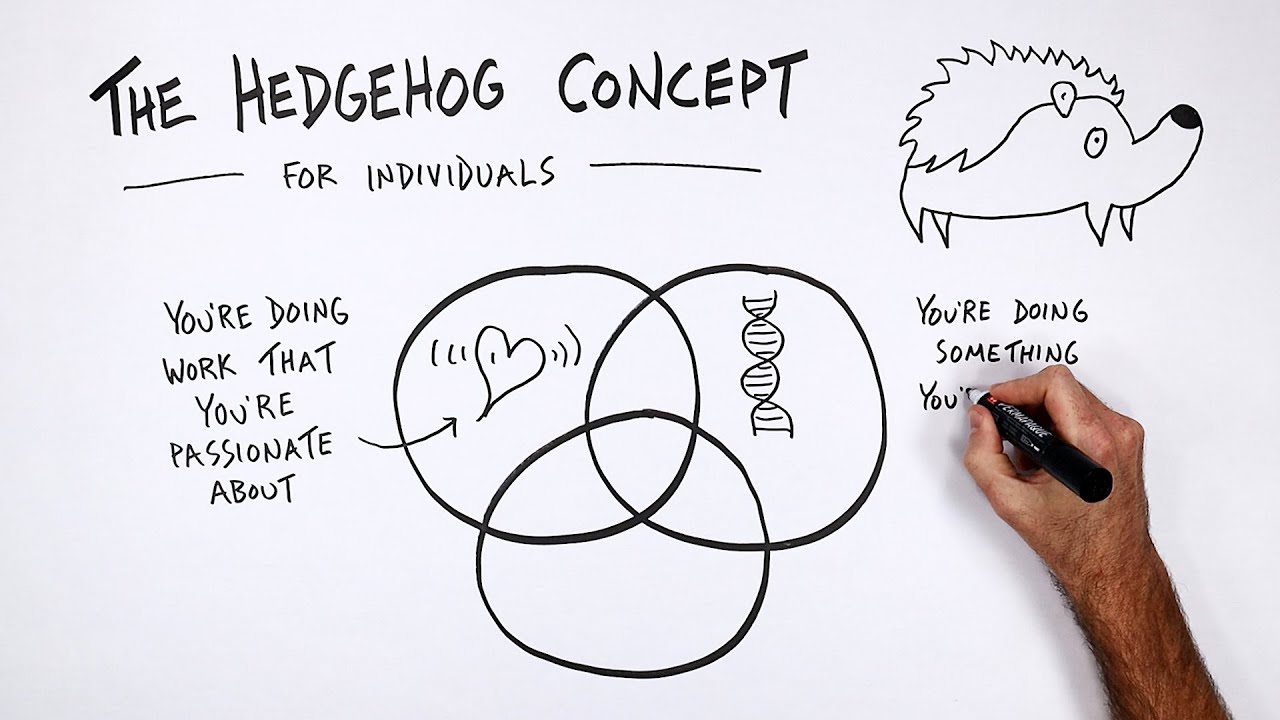 THE HEDGEHOG CONCEPT
FOR INDIVIDUALS
YOU'RE DOING
WORK THAT
YOU'RE
PASSIONATE
ABOUT
YOU'RE DOING
SOMETHING
YOU'